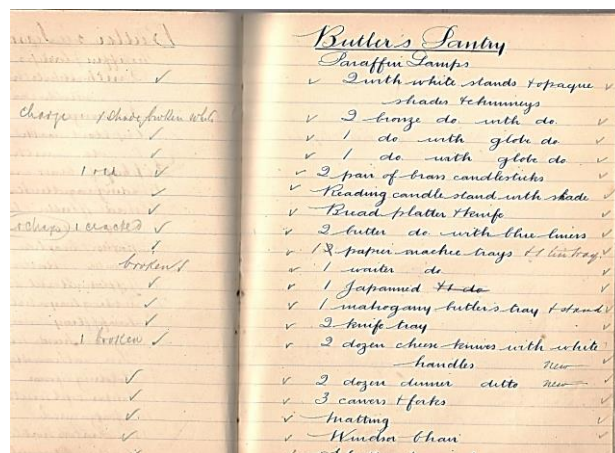 charge x Shade broken white
1 old
1 cracked
broken 1
1 broken
Butler's Pantry
Paraffin Lamps
2 with white stands + opaque
shades + chimneys
2 bronze do with do.
1 do with globe do
1 do with globe do
2 pair of brass candlesticks
Reading candle stand with shade
Bread platter + knife
2 butter do with blue liners
12 paper machee trays + 1 tin tray
1 waiter do
1 Japanned + 1 do
1 mahogany butler's tray + stand
2 knife tray
2 dozen cheese knives with white
handles new
2 dozen dinner ditto new
3 carvers + forks
Matting
Windsor Chair